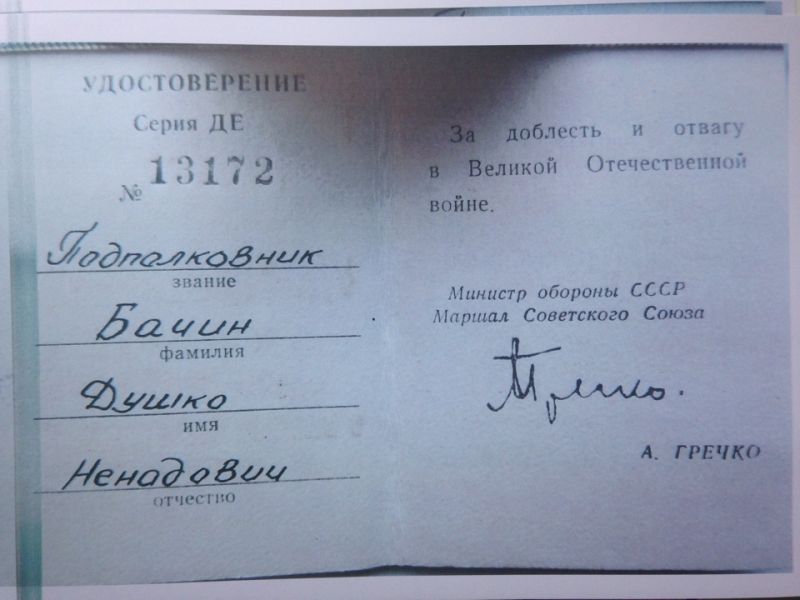 УДОСТОВЕРЕНИЕ
Серия ДЕ
№ 13172
Подпалковник
звание
Бачин
фамилия
Душко
имя
Ненадович
отчество
За доблесть и отвагу
в Великой Отечественной
войне.
Министр обороны СССР
Маршал Советского Союза
А. ГРЕЧКО